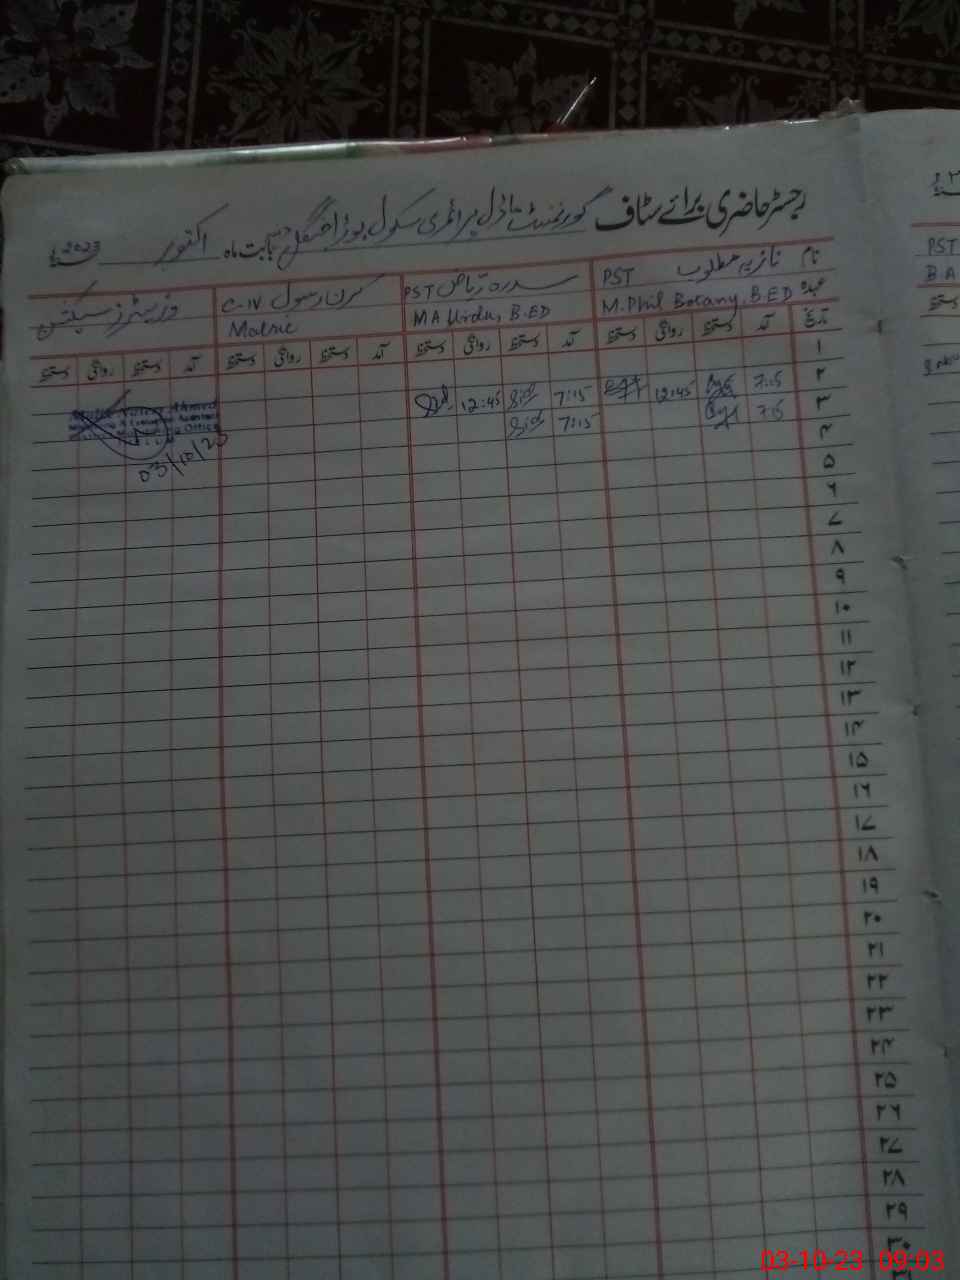 رجسٹر حاضری برائے سٹاف گورنمنٹ ماڈل پرائمری سکول بابت ماہ اکتوبر 2023ء
نام نازیہ مطلوب PST سدرہ ریاض PST کرن رسول C-IV وزیٹرز سیکشن
عہدہ M.Phil Botany, B.ED M A Urdu, B-ED Matric
تاریخ آمد دستخط روانگی دستخط آمد دستخط روانگی دستخط آمد دستخط روانگی دستخط آمد دستخط روانگی دستخط
۱
۲ 7:15 12:45 7:15 Sid 12:45 Sid
۳ 7:15 7:15 Sid
Ahmed
Office
03/10/23
۴
۵
۶
۷
۸
۹
۱۰
۱۱
۱۲
۱۳
۱۴
۱۵
۱۶
۱۷
۱۸
۱۹
۲۰
۲۱
۲۲
۲۳
۲۴
۲۵
۲۶
۲۷
۲۸
۲۹
۳۰
PST
B.A
03-10-23 09:03